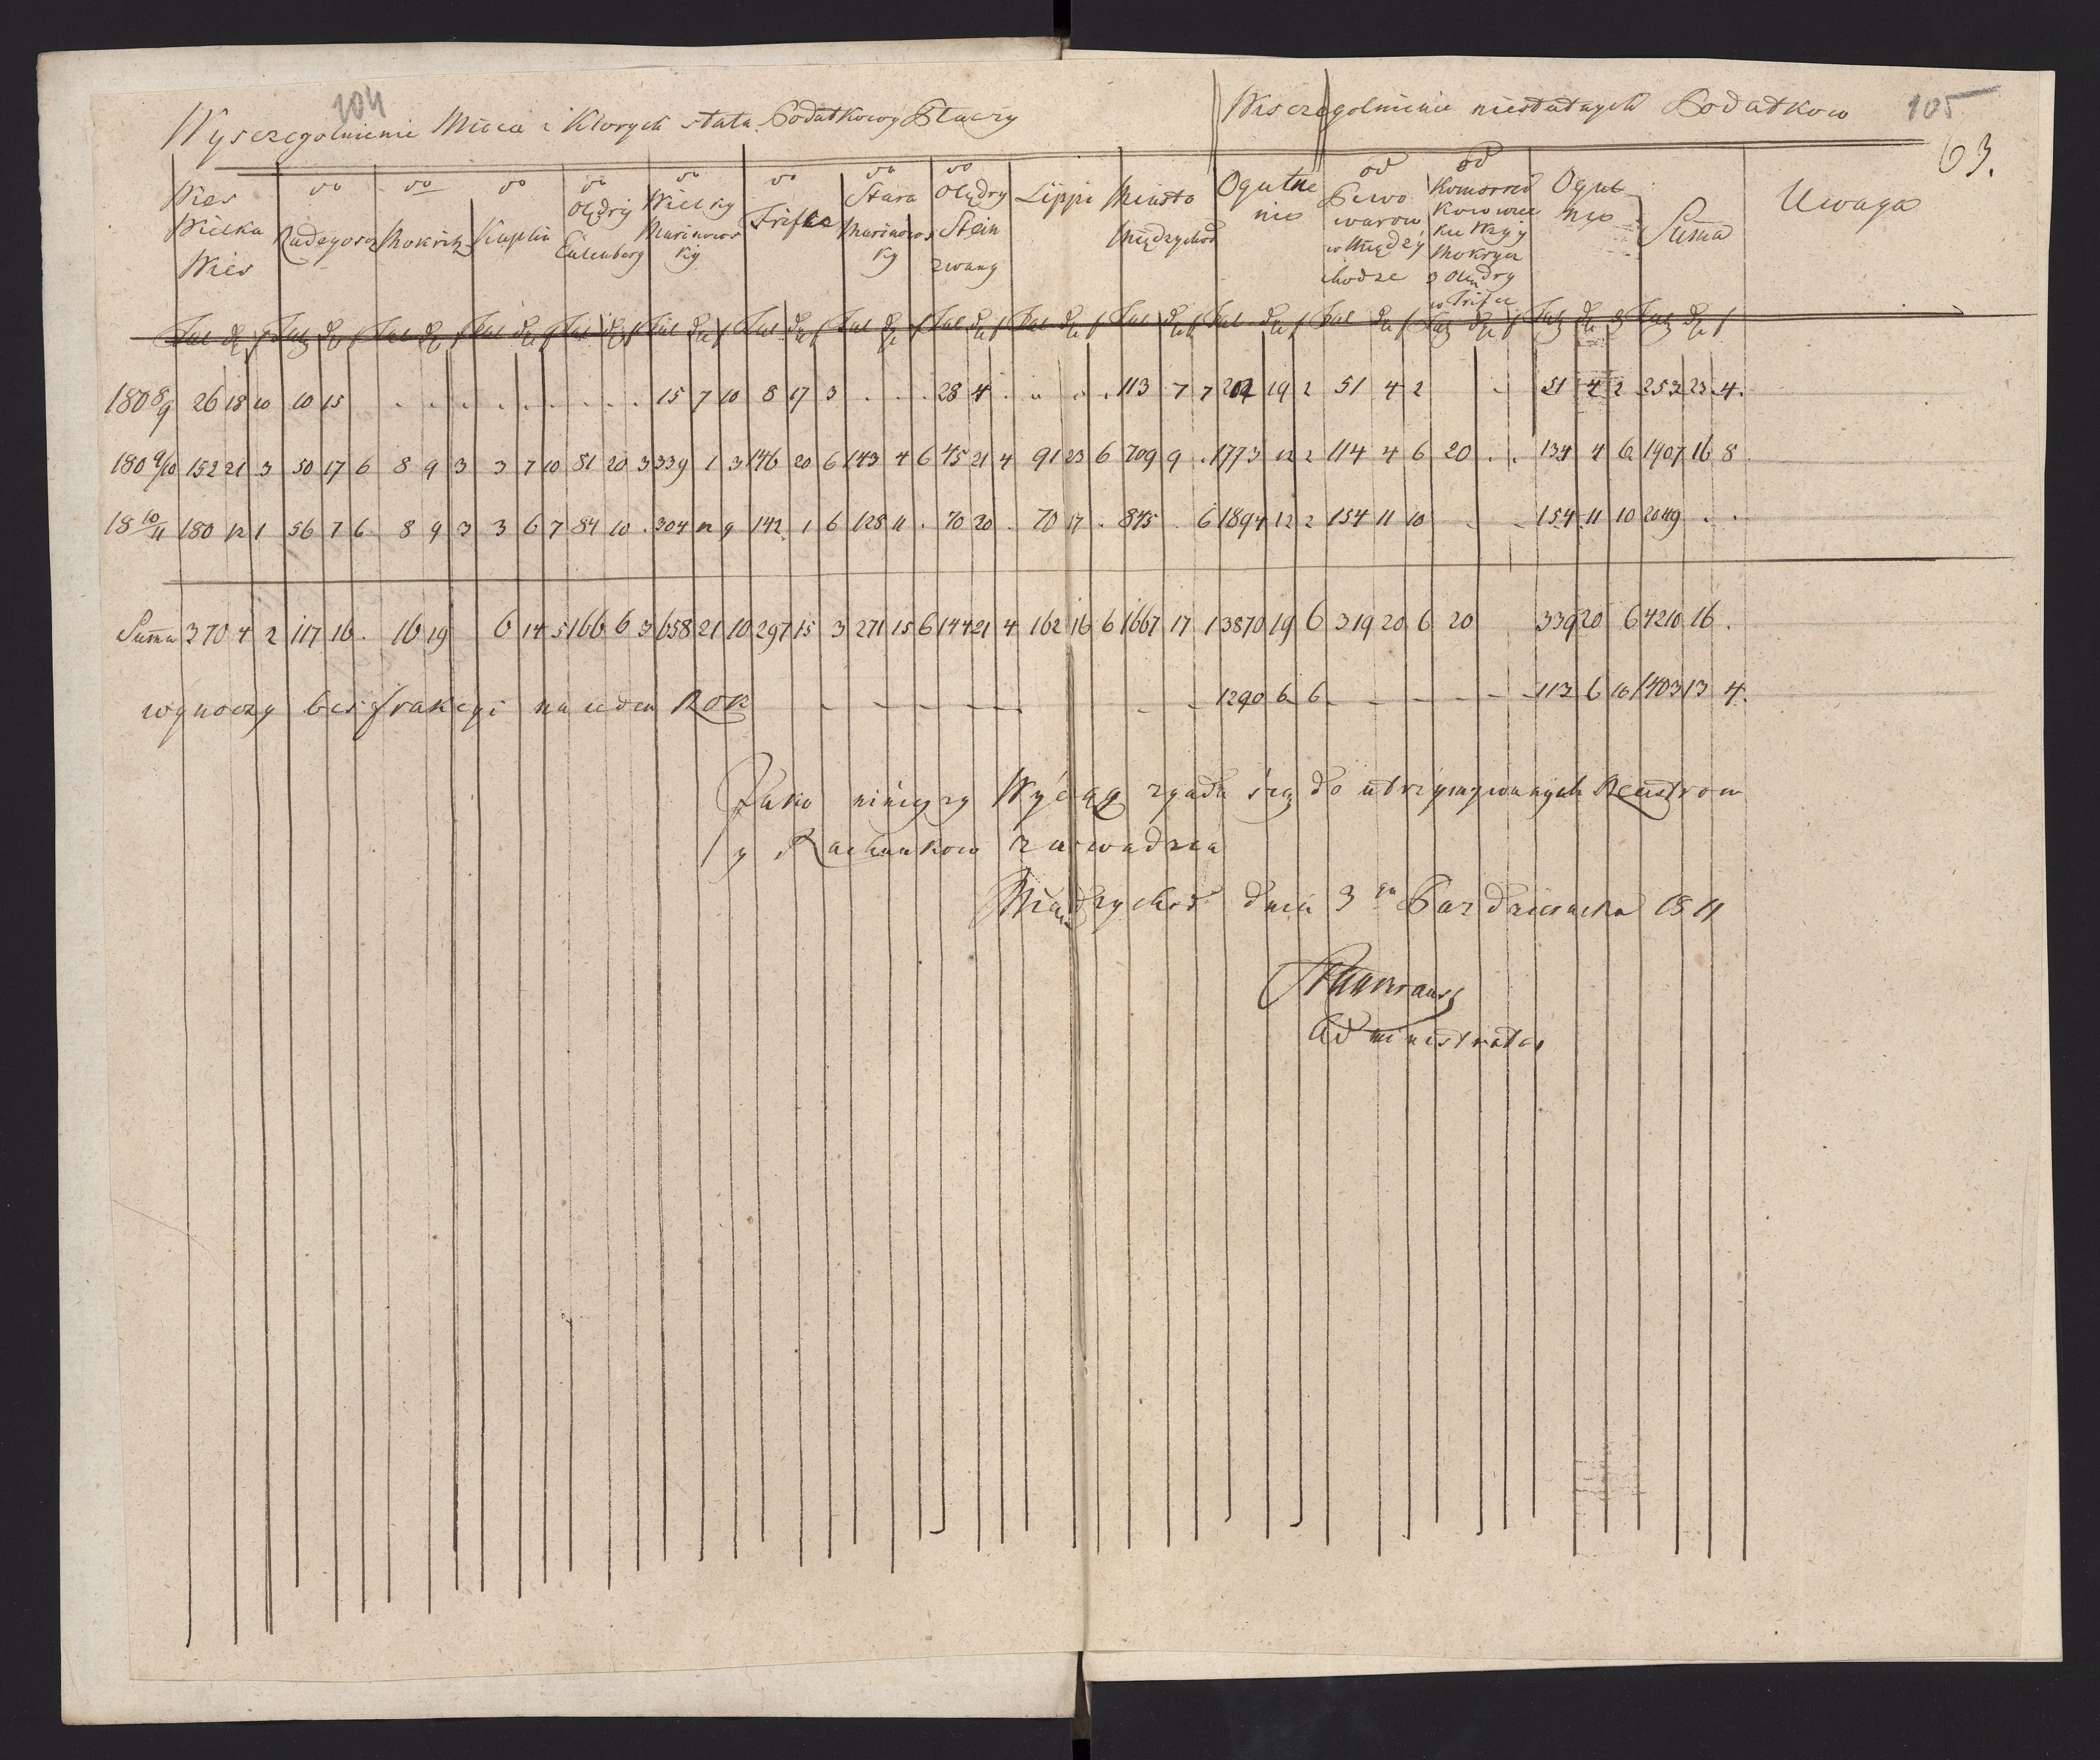 104
Wysczegolnienie Mieca i Ktorych stata Podatkowy Płaczy
Wisczegolnienie niestatnych Podatkow
105
63.
Wies Wielka Wies
do Radegosz
do Mokritz
do Kaplin
do Olędry Eulenberg
do Wielky Murinowos ky
do Trifke
do Stara Murinowos ky
do Olędry Stein zwany
Lippi
Miasto Międzychod
Ogulnie nio
od Piwo warow w Między chodze
od
Ogul nio
Suma
Uwaga
180 8/9 26 18 10 10 15 . . . . . . . . . . . 15 7 10 8 17 3 . . . 28 4 . . . . 113 7 7 202 19 2 51 4 2 . 51 4 2 253 23 4.
180 9/10 152 21 3 50 17 6 8 9 3 3 7 10 81 20 3 339 1 3 146 20 6 143 4 6 45 21 4 91 23 6 709 9 . 1773 12 2 114 4 6 20 . . 134 4 6 1907 16 8
18 10/11 180 12 1 56 7 6 8 9 3 3 6 7 84 10 . 304 12 9 142 1 6 128 11 . 70 20 . 70 17 . 845 . 6 1894 12 2 154 11 10 . . 154 11 10 2049 . .
Suma 370 4 2 117 16 . 16 19 6 14 5 166 6 3 658 21 10 297 15 3 271 15 6 144 21 4 162 16 6 1667 17 1 3870 19 6 319 20 6 20 339 20 6 4210 16 .
wynoczy bes frakcyi na ieden Rok 1290 6 6 113 6 10 1403 13 4.
Jako ninieyszy Wyciąg zgadza się do utrzymywanych Reiestrow
y Rachunkow zaswadcza
Międzychod dnia 3 go Pazdziernika 1811
Administrator